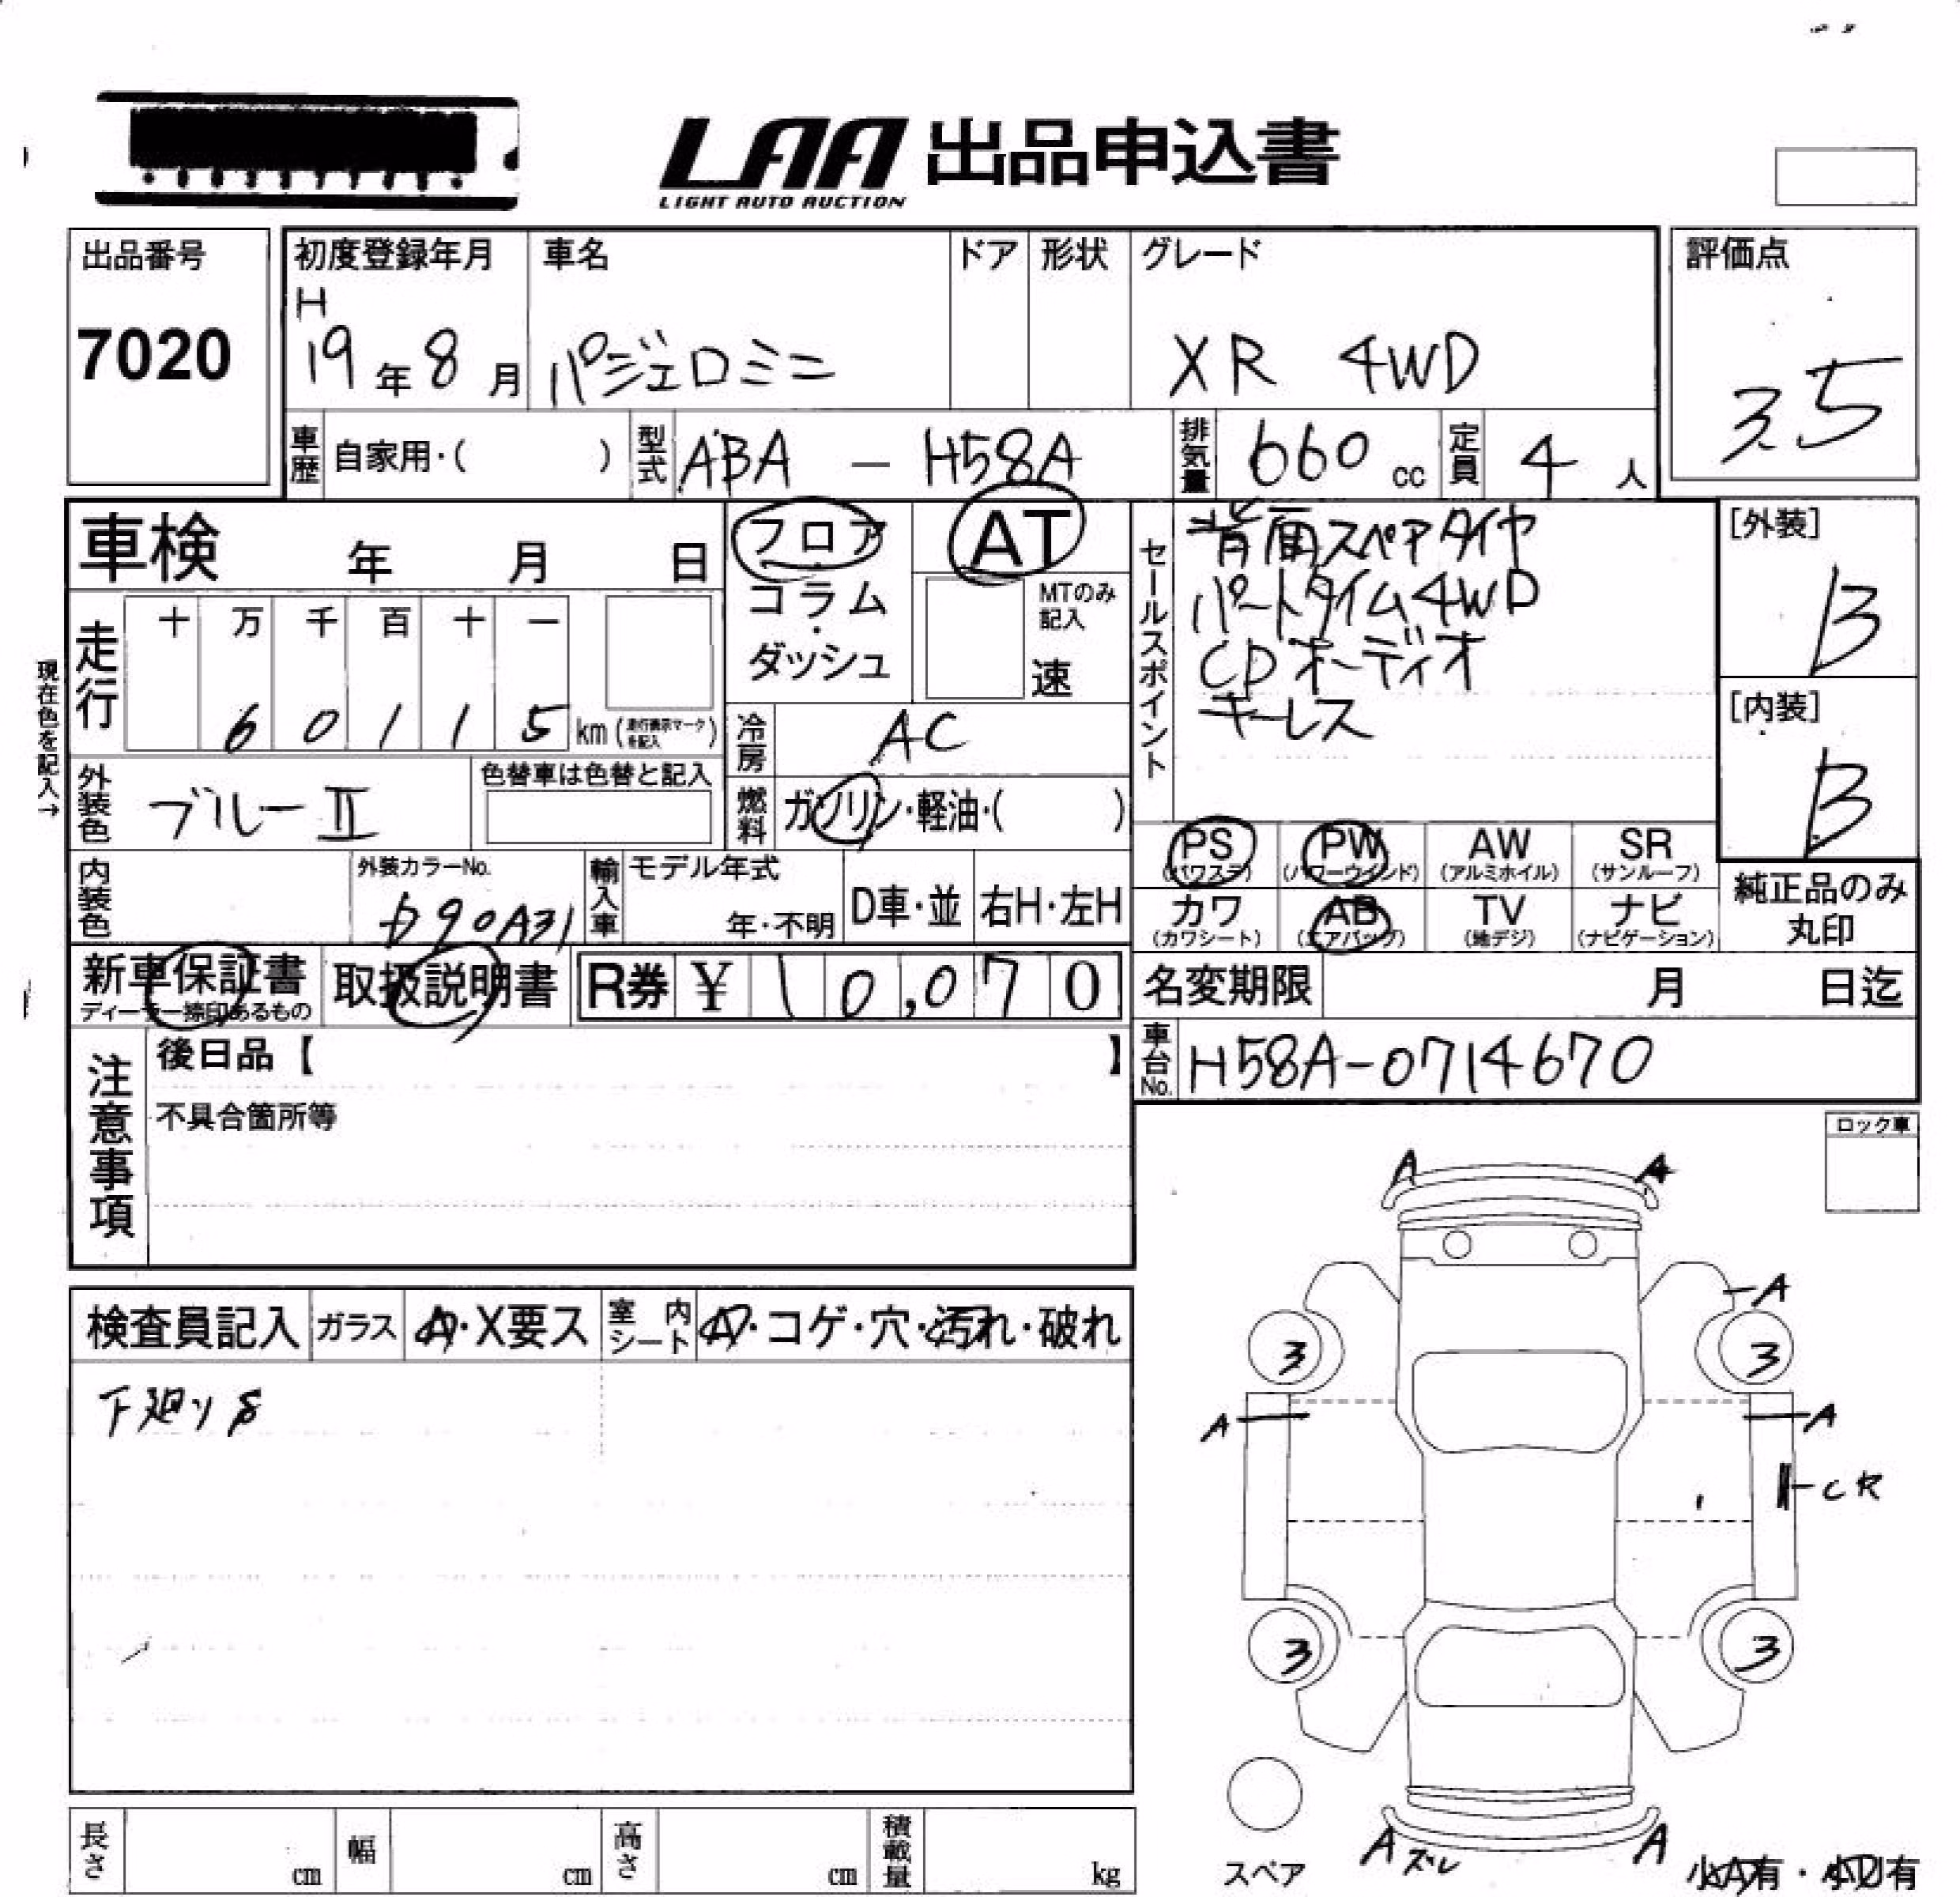 LAA 出品申込書
LIGHT AUTO AUCTION
出品番号
7020
初度登録年月
H
19年8月
車名
パジェロミニ
ドア
形状
グレード
XR 4WD
評価点
3.5
車歴
自家用・( )
型式
ABA - H58A
排気量
660 cc
定員
4 人
車検 年 月 日
走行
十 万 千 百 十 一
6 0 1 1 5 km (走行表示マークを記入)
現在色を記入→
フロア
・
コラム
・
ダッシュ
AT
MTのみ
記入
速
冷房
AC
燃料
ガソリン・軽油・( )
セールスポイント
背面スペアタイヤ
パートタイム4WD
CDオーディオ
キーレス
[外装]
B
[内装]
B
外装色
ブルーⅡ
色替車は色替と記入
内装色
外装カラーNo.
輸入車
モデル年式
年・不明
D車・並
右H・左H
PS
(パワステ)
PW
(パワーウインド)
AW
(アルミホイル)
SR
(サンルーフ)
カワ
(カワシート)
AB
(エアバッグ)
TV
(地デジ)
ナビ
(ナビゲーション)
純正品のみ
丸印
新車保証書
ディーラー捺印あるもの
取扱説明書
R券 ¥ 10,070
名変期限 月 日迄
車台No.
H58A-0714670
注意事項
後日品【 】
不具合箇所等
ロック車
検査員記入
ガラス
A・X要ス
室内
シート
A・コゲ・穴・汚れ・破れ
下廻りS
A A
A
3 3
A A
CR
3 3
スペア
A ズレ A
小A有・小U有
長さ cm
幅 cm
高さ cm
積載量 kg